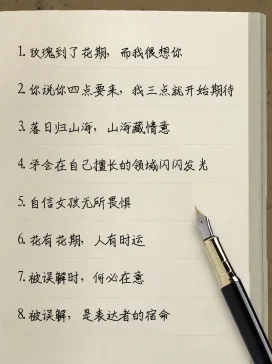 1. 玫瑰到了花期，而我很想你
2. 你说你四点要来，我三点就开始期待
3. 落日归山海，山海藏情意
4. 学会在自己擅长的领域闪闪发光
5. 自信女孩无所畏惧
6. 花有花期，人有时运
7. 被误解时，何必在意
8. 被误解，是表达者的宿命